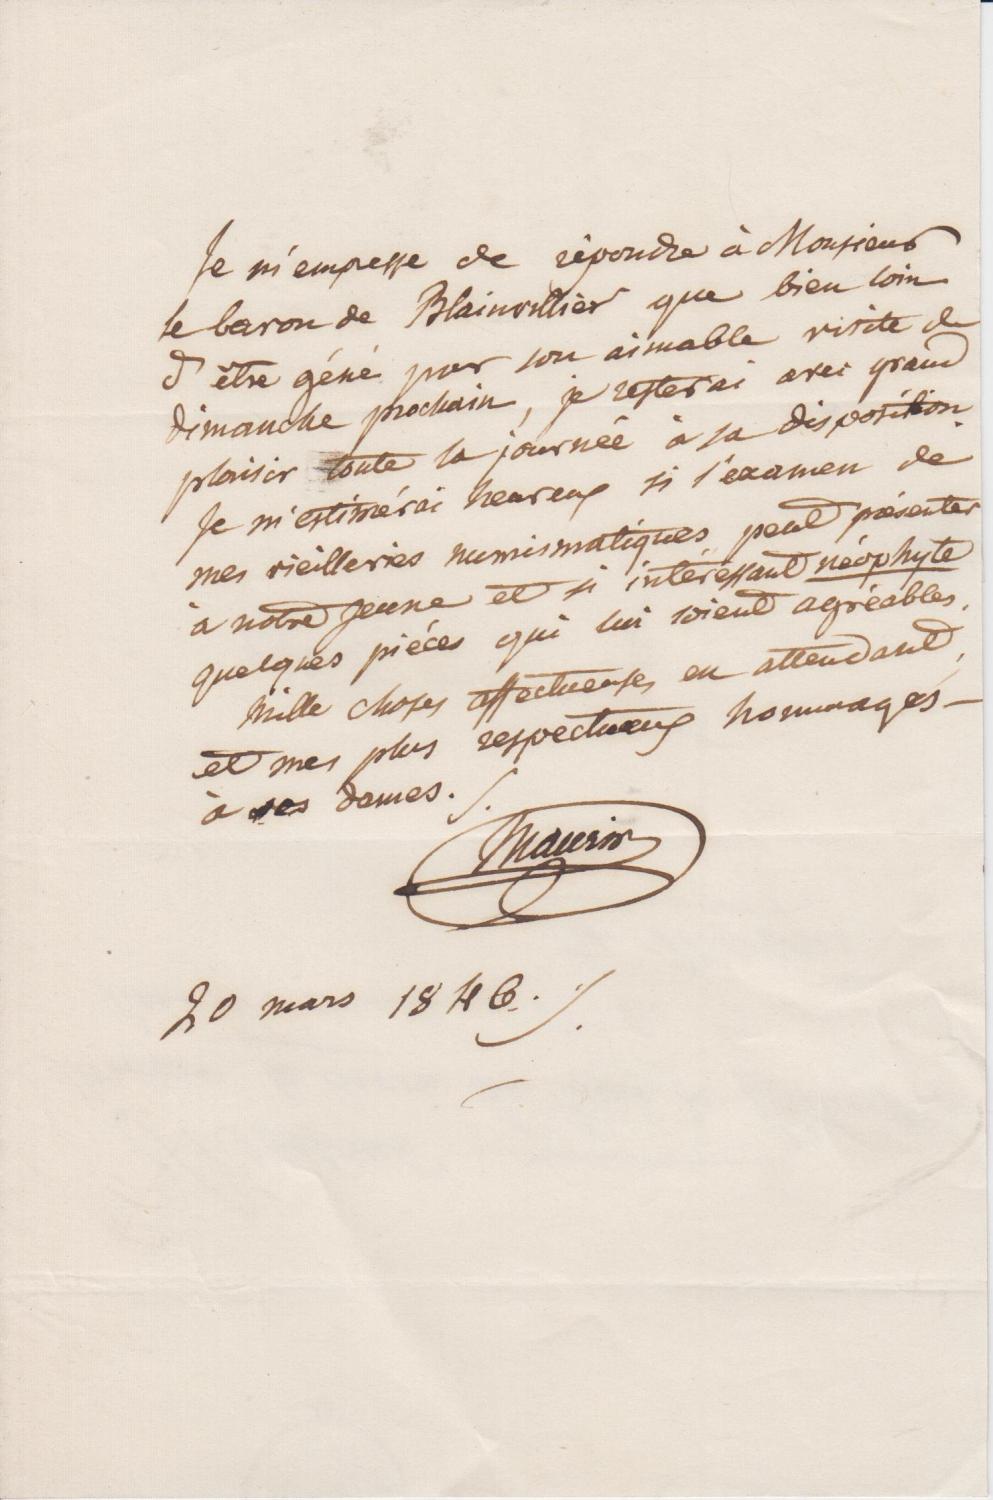 Je m'empresse de répondre à Monsieur
le baron de Blainvillier que bien loin
d'être géné par son aimable visite de
dimanche prochain, je resterai avec grand
plaisir toute la journée à sa disposition.
Je m'estimérai heureux si l'examen de
mes vieilleries numismatiques peut présenter
à notre jeune et si intéressant néophyte
quelques piéces qui lui soient agréables.
Mille choses affectueuses en attendant,
et mes plus respectueux hommages —
à ses dames.
20 mars 1846.